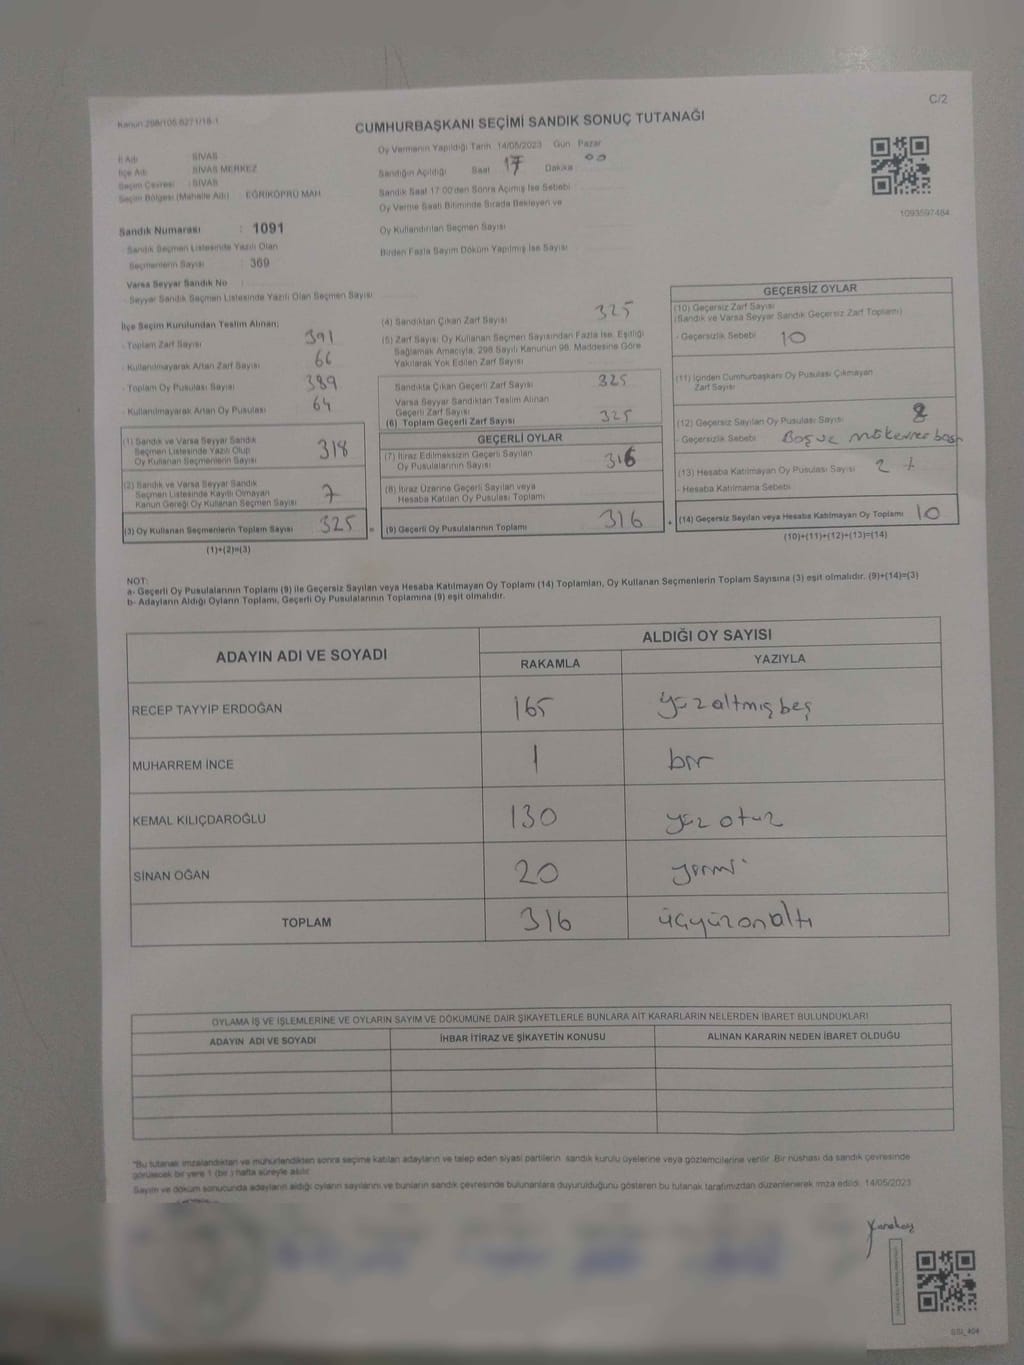 C/2
Kanun 298/105 6271/18-1
CUMHURBAŞKANI SEÇİMİ SANDIK SONUÇ TUTANAĞI
İl Adı : SİVAS
İlçe Adı : SİVAS MERKEZ
Seçim Çevresi : SİVAS
Seçim Bölgesi (Mahalle Adı) : EĞRİKÖPRÜ MAH.
Sandık Numarası : 1091
- Sandık Seçmen Listesinde Yazılı Olan
Seçmenlerin Sayısı : 369
Varsa Seyyar Sandık No :
- Seyyar Sandık Seçmen Listesinde Yazılı Olan Seçmen Sayısı
Oy Vermenin Yapıldığı Tarih 14/05/2023 Gün Pazar
Sandığın Açıldığı Saat 17 Dakika 00
Sandık Saat 17:00'den Sonra Açılmış İse Sebebi
Oy Verme Saati Bitiminde Sırada Bekleyen ve
Oy Kullandırılan Seçmen Sayısı
Birden Fazla Sayım Döküm Yapılmış İse Sayısı
1093597484
İlçe Seçim Kurulundan Teslim Alınan:
- Toplam Zarf Sayısı 391
- Kullanılmayarak Artan Zarf Sayısı 66
- Toplam Oy Pusulası Sayısı 389
- Kullanılmayarak Artan Oy Pusulası 64
(1) Sandık ve Varsa Seyyar Sandık
Seçmen Listesinde Yazılı Olup
Oy Kullanan Seçmenlerin Sayısı 318
(2) Sandık ve Varsa Seyyar Sandık
Seçmen Listesinde Kayıtlı Olmayan
Kanun Gereği Oy Kullanan Seçmen Sayısı 7
(3) Oy Kullanan Seçmenlerin Toplam Sayısı 325 =
(1)+(2)=(3)
(4) Sandıktan Çıkan Zarf Sayısı 325
(5) Zarf Sayısı Oy Kullanan Seçmen Sayısından Fazla İse, Eşitliği
Sağlamak Amacıyla, 298 Sayılı Kanunun 98. Maddesine Göre
Yakılarak Yok Edilen Zarf Sayısı
Sandıkta Çıkan Geçerli Zarf Sayısı 325
Varsa Seyyar Sandıktan Teslim Alınan
Geçerli Zarf Sayısı
(6) Toplam Geçerli Zarf Sayısı 325
GEÇERLİ OYLAR
(7) İtiraz Edilmeksizin Geçerli Sayılan
Oy Pusulalarının Sayısı 316
(8) İtiraz Üzerine Geçerli Sayılan veya
Hesaba Katılan Oy Pusulası Toplamı
(9) Geçerli Oy Pusulalarının Toplamı 316 +
GEÇERSİZ OYLAR
(10) Geçersiz Zarf Sayısı
(Sandık ve Varsa Seyyar Sandık Geçersiz Zarf Toplamı)
- Geçersizlik Sebebi 10
(11) İçinden Cumhurbaşkanı Oy Pusulası Çıkmayan
Zarf Sayısı
(12) Geçersiz Sayılan Oy Pusulası Sayısı 8
- Geçersizlik Sebebi Boş ve mükerrer bas
(13) Hesaba Katılmayan Oy Pusulası Sayısı 2
- Hesaba Katılmama Sebebi
(14) Geçersiz Sayılan veya Hesaba Katılmayan Oy Toplamı 10
(10)+(11)+(12)+(13)=(14)
NOT:
a- Geçerli Oy Pusulalarının Toplamı (9) ile Geçersiz Sayılan veya Hesaba Katılmayan Oy Toplamı (14) Toplamları, Oy Kullanan Seçmenlerin Toplam Sayısına (3) eşit olmalıdır. (9)+(14)=(3)
b- Adayların Aldığı Oyların Toplamı, Geçerli Oy Pusulalarının Toplamına (9) eşit olmalıdır.
ADAYIN ADI VE SOYADI
ALDIĞI OY SAYISI
RAKAMLA YAZIYLA
RECEP TAYYİP ERDOĞAN 165 yüzaltmışbeş
MUHARREM İNCE 1 bir
KEMAL KILIÇDAROĞLU 130 yüz otuz
SİNAN OĞAN 20 yirmi
TOPLAM 316 üçyüzonaltı
OYLAMA İŞ VE İŞLEMLERİNE VE OYLARIN SAYIM VE DÖKÜMÜNE DAİR ŞİKAYETLERLE BUNLARA AİT KARARLARIN NELERDEN İBARET BULUNDUKLARI
ADAYIN ADI VE SOYADI İHBAR İTİRAZ VE ŞİKAYETİN KONUSU ALINAN KARARIN NEDEN İBARET OLDUĞU
*Bu tutanak imzalandıktan ve mühürlendikten sonra seçime katılan adayların ve talep eden siyasi partilerin sandık kurulu üyelerine veya gözlemcilerine verilir. Bir nüshası da sandık çevresinde
görülecek bir yere 1 (bir ) hafta süreyle asılır.
Sayım ve döküm sonucunda adayların aldığı oyların sayılarını ve bunların sandık çevresinde bulunanlara duyurulduğunu gösteren bu tutanak tarafımızdan düzenlenerek imza edildi. 14/05/2023
SSI_404